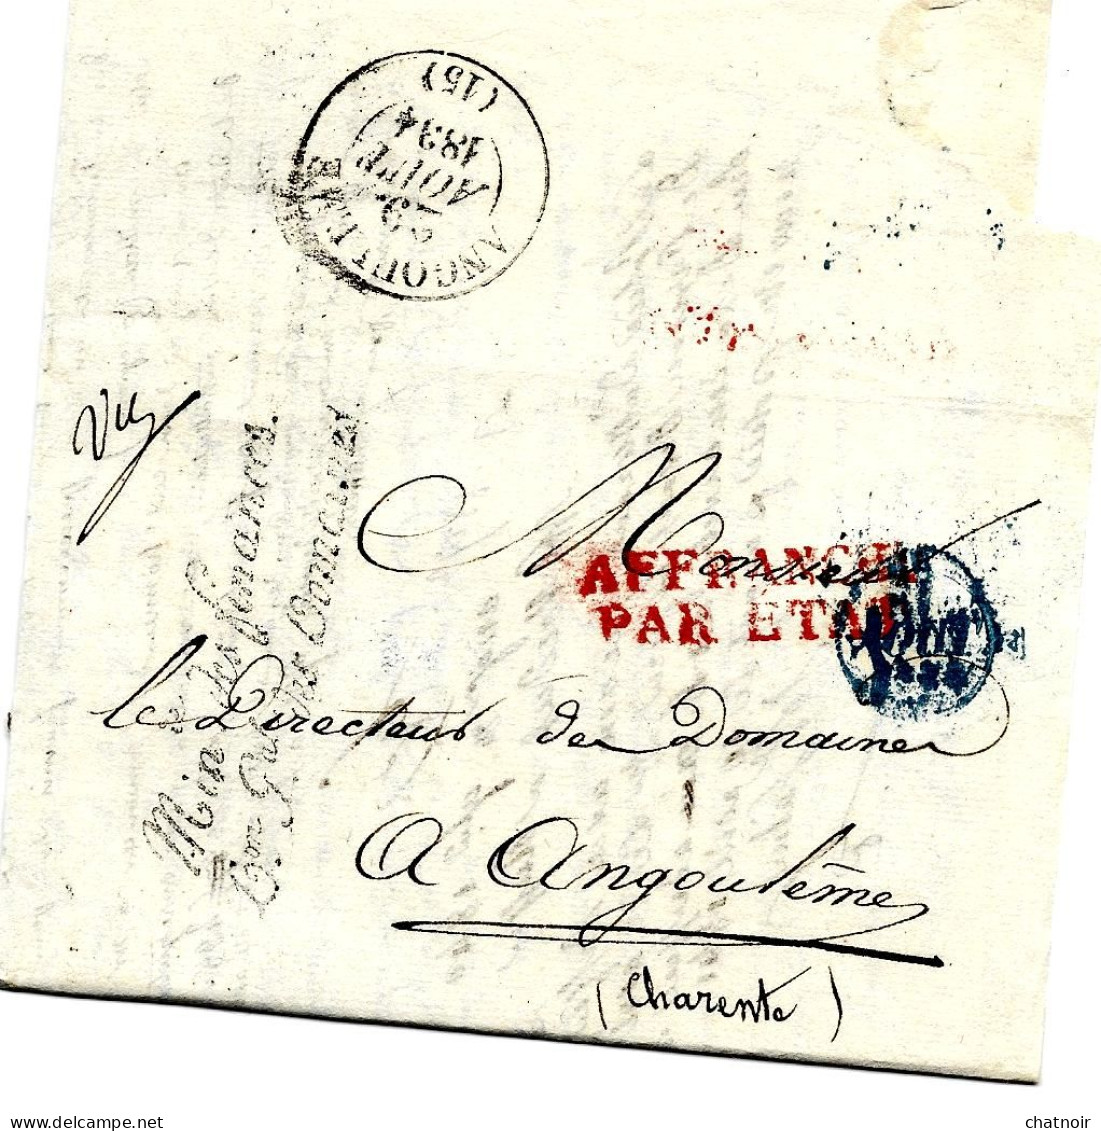 ANGOULEME
29
AOUT
1834
(15)
Min. des Finances.
on Gale des Domaines
AFFRANCHI
PAR ÉTAT
Monsieur
le Directeur des Domaines
A Angoulême
(Charente)
chatnoir